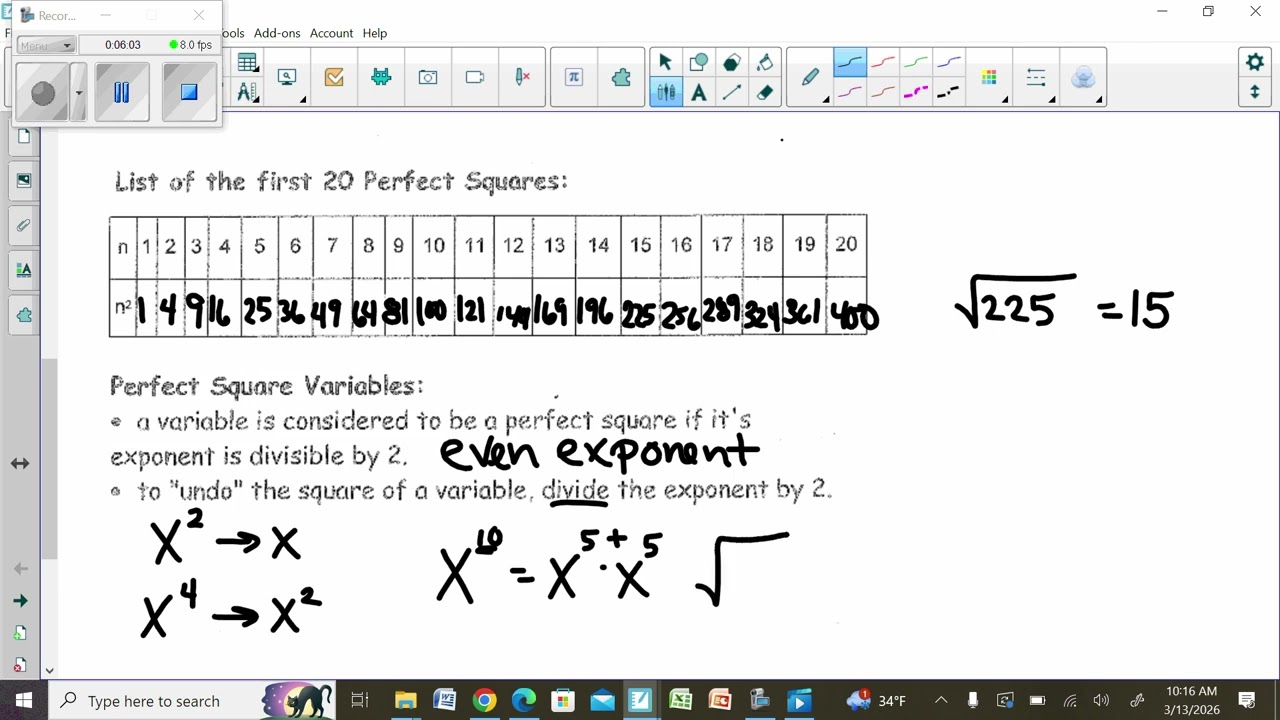 Recor...
Menu
0:06:03
8.0 fps
Tools Add-ons Account Help
List of the first 20 Perfect Squares:
n 1 2 3 4 5 6 7 8 9 10 11 12 13 14 15 16 17 18 19 20
n² 1 4 9 16 25 36 49 64 81 100 121 144 169 196 225 256 289 324 361 400
√225 = 15
Perfect Square Variables:
• a variable is considered to be a perfect square if it's
exponent is divisible by 2. even exponent
• to "undo" the square of a variable, divide the exponent by 2.
x² → x
x¹⁰ = x⁵ · x⁵ √
+
x⁴ → x²
Type here to search
34°F
10:16 AM
3/13/2026